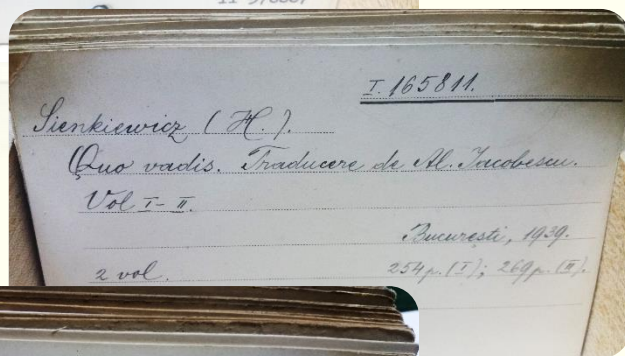 I. 165811.
Sienkiewicz (H.).
Quo vadis. Traducere de Al. Iacobescu.
Vol I-II.
București, 1939.
2 vol. 254 p. (I); 269 p. (II).